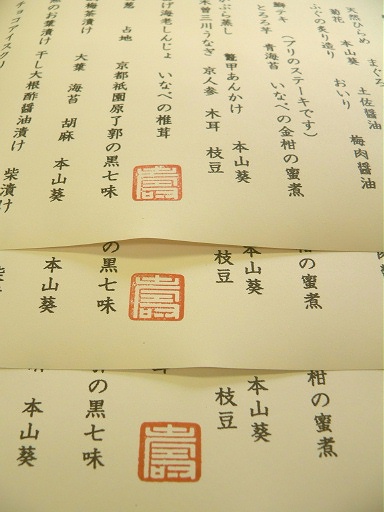 天然ひらめ まぐろ
菊花 本山葵 土佐醤油
ふぐの炙り造り おいり 梅肉醤油
鰤テキ (ブリのステーキです)
とろろ芋 青海苔 いなべの金柑の蜜煮
かぶら蒸し 鼈甲あんかけ 本山葵
木曽三川うなぎ 京人参 木耳 枝豆
げ海老しんじょ いなべの椎茸
葱 占地 京都祇園原了郭の黒七味
梅茶漬け 大葉 海苔 胡麻 本山葵
のお葉漬け 干し大根酢醤油漬け 柴漬け
チョコアイスクリ
寿
の蜜煮
本山葵
枝豆
の黒七味
本山葵
寿
柑の蜜煮
本山葵
枝豆
の黒七味
本山葵
寿